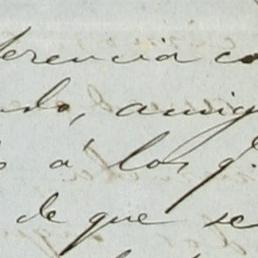 erencia co
ndo, amig
s á los q.
de que se